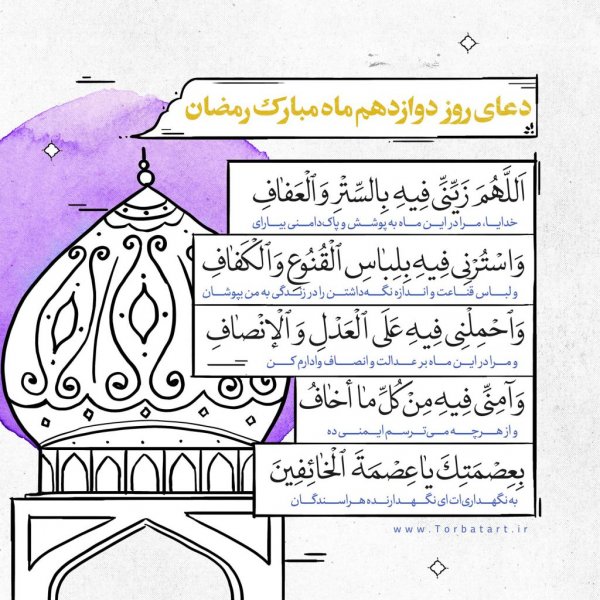 دعای روز دوازدهم ماه مبارک رمضان
اَللَّهُمَ زَیِّنِّی فِیهِ بِالسِّتْرِ وَالْعَفافِ
خدایا، مرا در این ماه به پوشش و پاک‌دامنی بیارای
وَاسْتُرْنِی فِیهِ بِلِباسِ الْقُنُوعِ وَالْکَفافِ
و لباس قناعت و اندازه نگه‌داشتن را در زندگی به من بپوشان
وَاحْمِلْنِی فِیهِ عَلَی الْعَدْلِ وَ الْاِنْصافِ
و مرا در این ماه بر عدالت و انصاف وادارم کن
وَآمِنِّی فِیهِ مِنْ کُلِّ ما أخافُ
و از هرچه می‌ترسم ایمنی ده
بِعِصْمَتِكَ یا عِصْمَةَ الْخائِفِینَ
به نگهداری‌ات ای نگهدارنده هراسندگان
www.Torbatart.ir